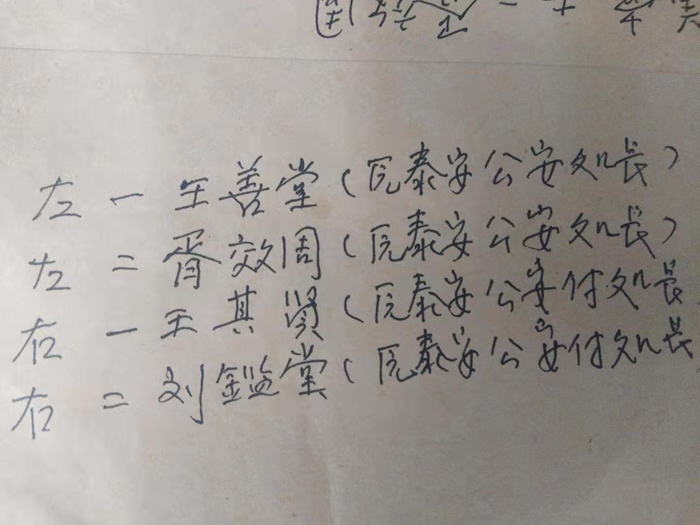 左一王善堂(原泰安公安处长)
左二胥效周(原泰安公安处长)
右一王其贤(原泰安公安付处长
右二刘鑑堂(原泰安公安付处长